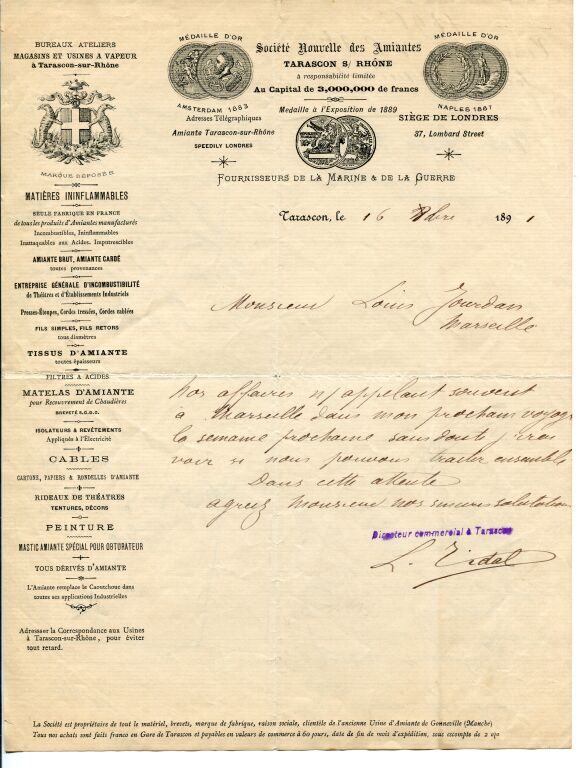 BUREAUX ATELIERS
MAGASINS ET USINES A VAPEUR
à Tarascon-sur-Rhône
MARQUE DÉPOSÉE
MATIÈRES ININFLAMMABLES
SEULE FABRIQUE EN FRANCE
de tous les produits d'Amiantes manufacturés
Incombustibles, Ininflammables
Inattaquables aux Acides. Imputrescibles
AMIANTE BRUT, AMIANTE CARDÉ
toutes provenances
ENTREPRISE GÉNÉRALE D'INCOMBUSTIBILITÉ
de Théâtres et d'Établissements Industriels
Presses-Étoupes, Cordes tressées, Cordes cablées
FILS SIMPLES, FILS RETORS
tous diamètres
TISSUS D'AMIANTE
toutes épaisseurs
FILTRES A ACIDES
MATELAS D'AMIANTE
pour Recouvrement de Chaudières
BREVETÉ S.G.D.G.
ISOLATEURS & REVÊTEMENTS
Appliqués à l'Électricité
CABLES
CARTONS, PAPIERS & RONDELLES D'AMIANTE
RIDEAUX DE THÉATRES
TENTURES, DÉCORS
PEINTURE
MASTIC AMIANTE SPÉCIAL POUR OBTURATEUR
TOUS DÉRIVÉS D'AMIANTE
L'Amiante remplace le Caoutchouc dans
toutes ses applications Industrielles
Adresser la Correspondance aux Usines
à Tarascon-sur-Rhône, pour éviter
tout retard.
MÉDAILLE D'OR
AMSTERDAM 1883
Société Nouvelle des Amiantes
TARASCON S/ RHÔNE
à responsabilité limitée
Au Capital de 3,000,000 de francs
MÉDAILLE D'OR
NAPLES 1887
Adresses Télégraphiques
Amiante Tarascon-sur-Rhône
SPEEDILY LONDRES
Médaille à l'Exposition de 1889
SIÈGE DE LONDRES
37, Lombard Street
FOURNISSEURS DE LA MARINE & DE LA GUERRE
Tarascon, le 16 Xbre 1891
Monsieur Louis Jourdan
Marseille
Nos affaires m'appelant souvent
à Marseille dans mon prochain voyage
la semaine prochaine sans doute j'irai
voir si nous pouvons traiter ensemble
Dans cette attente
agréez Monsieur nos sincères salutations
Directeur commercial à Tarascon
L. Vidal
La Société est propriétaire de tout le matériel, brevets, marque de fabrique, raison sociale, clientèle de l'ancienne Usine d'Amiante de Gonneville (Manche)
Tous nos achats sont faits franco en Gare de Tarascon et payables en valeurs de commerce à 60 jours, date de fin de mois d'expédition, sous escompte de 2 0/0